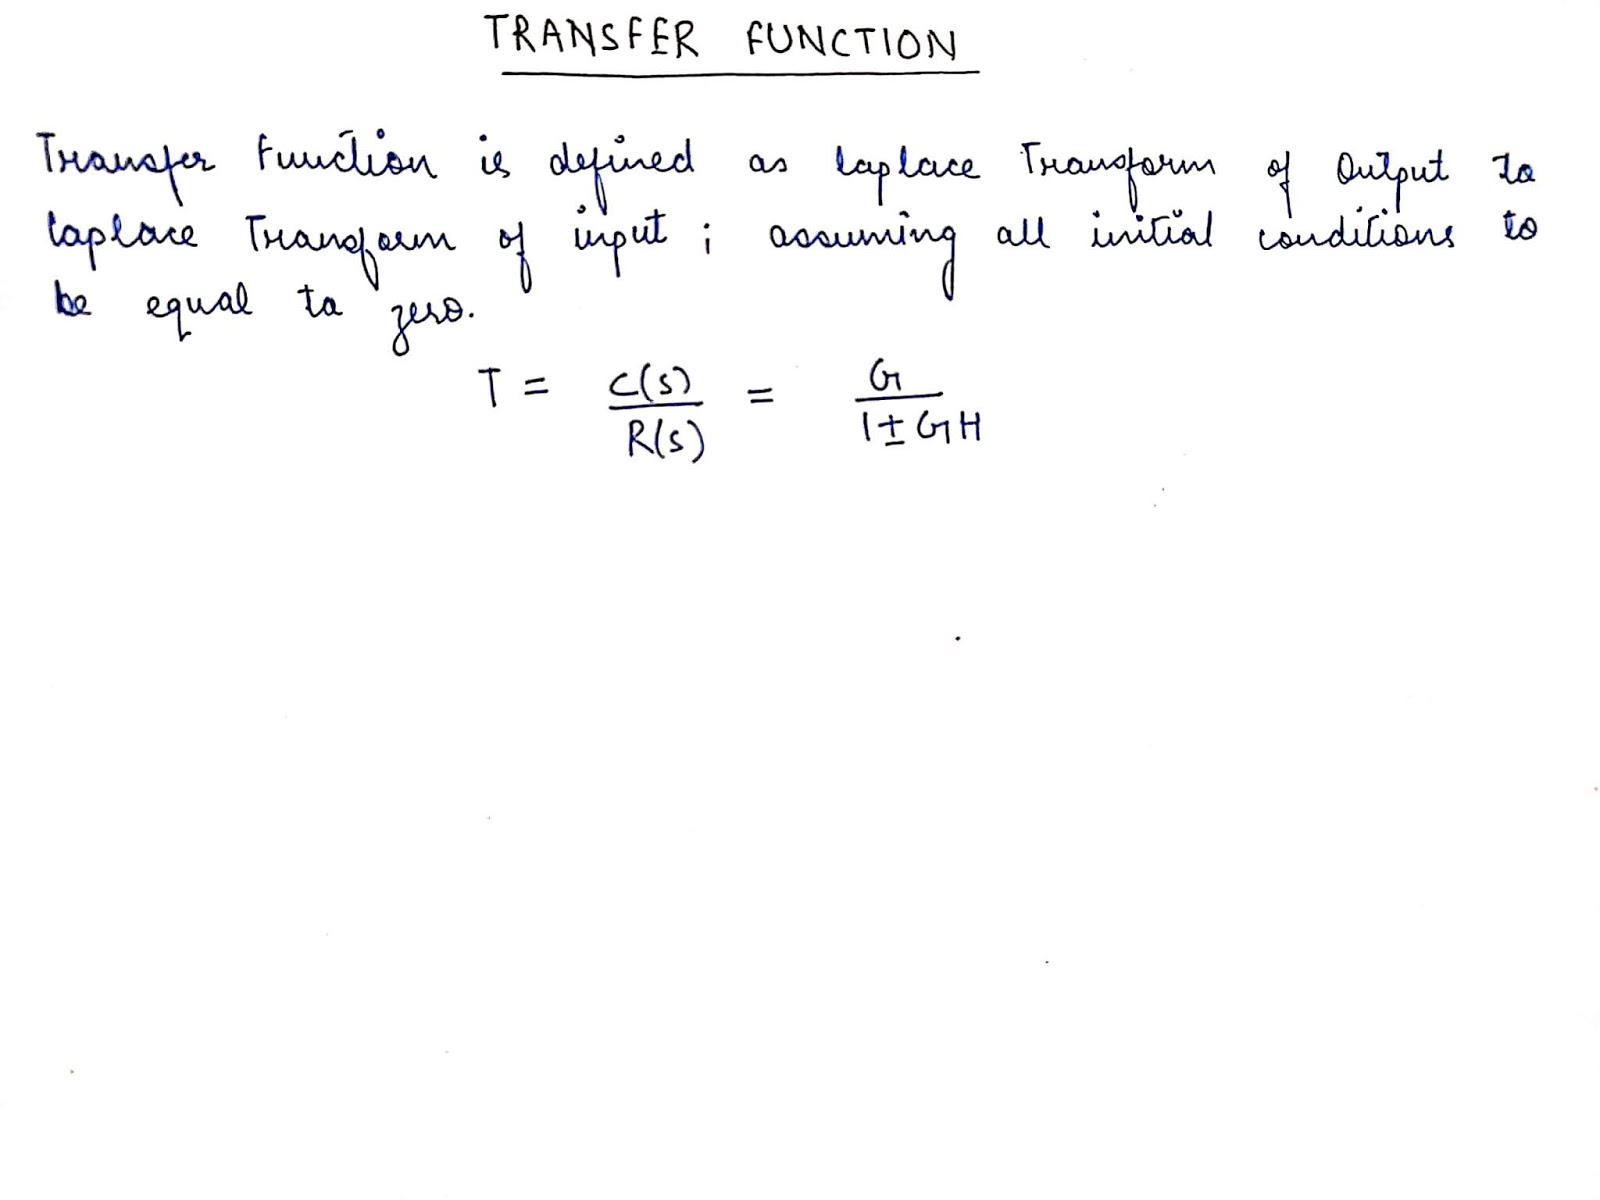 TRANSFER FUNCTION
Transfer Function is defined as laplace Transform of Output to
laplace Transform of input ; assuming all initial conditions to
be equal to zero.
T = C(s)/R(s) = G/1±GH